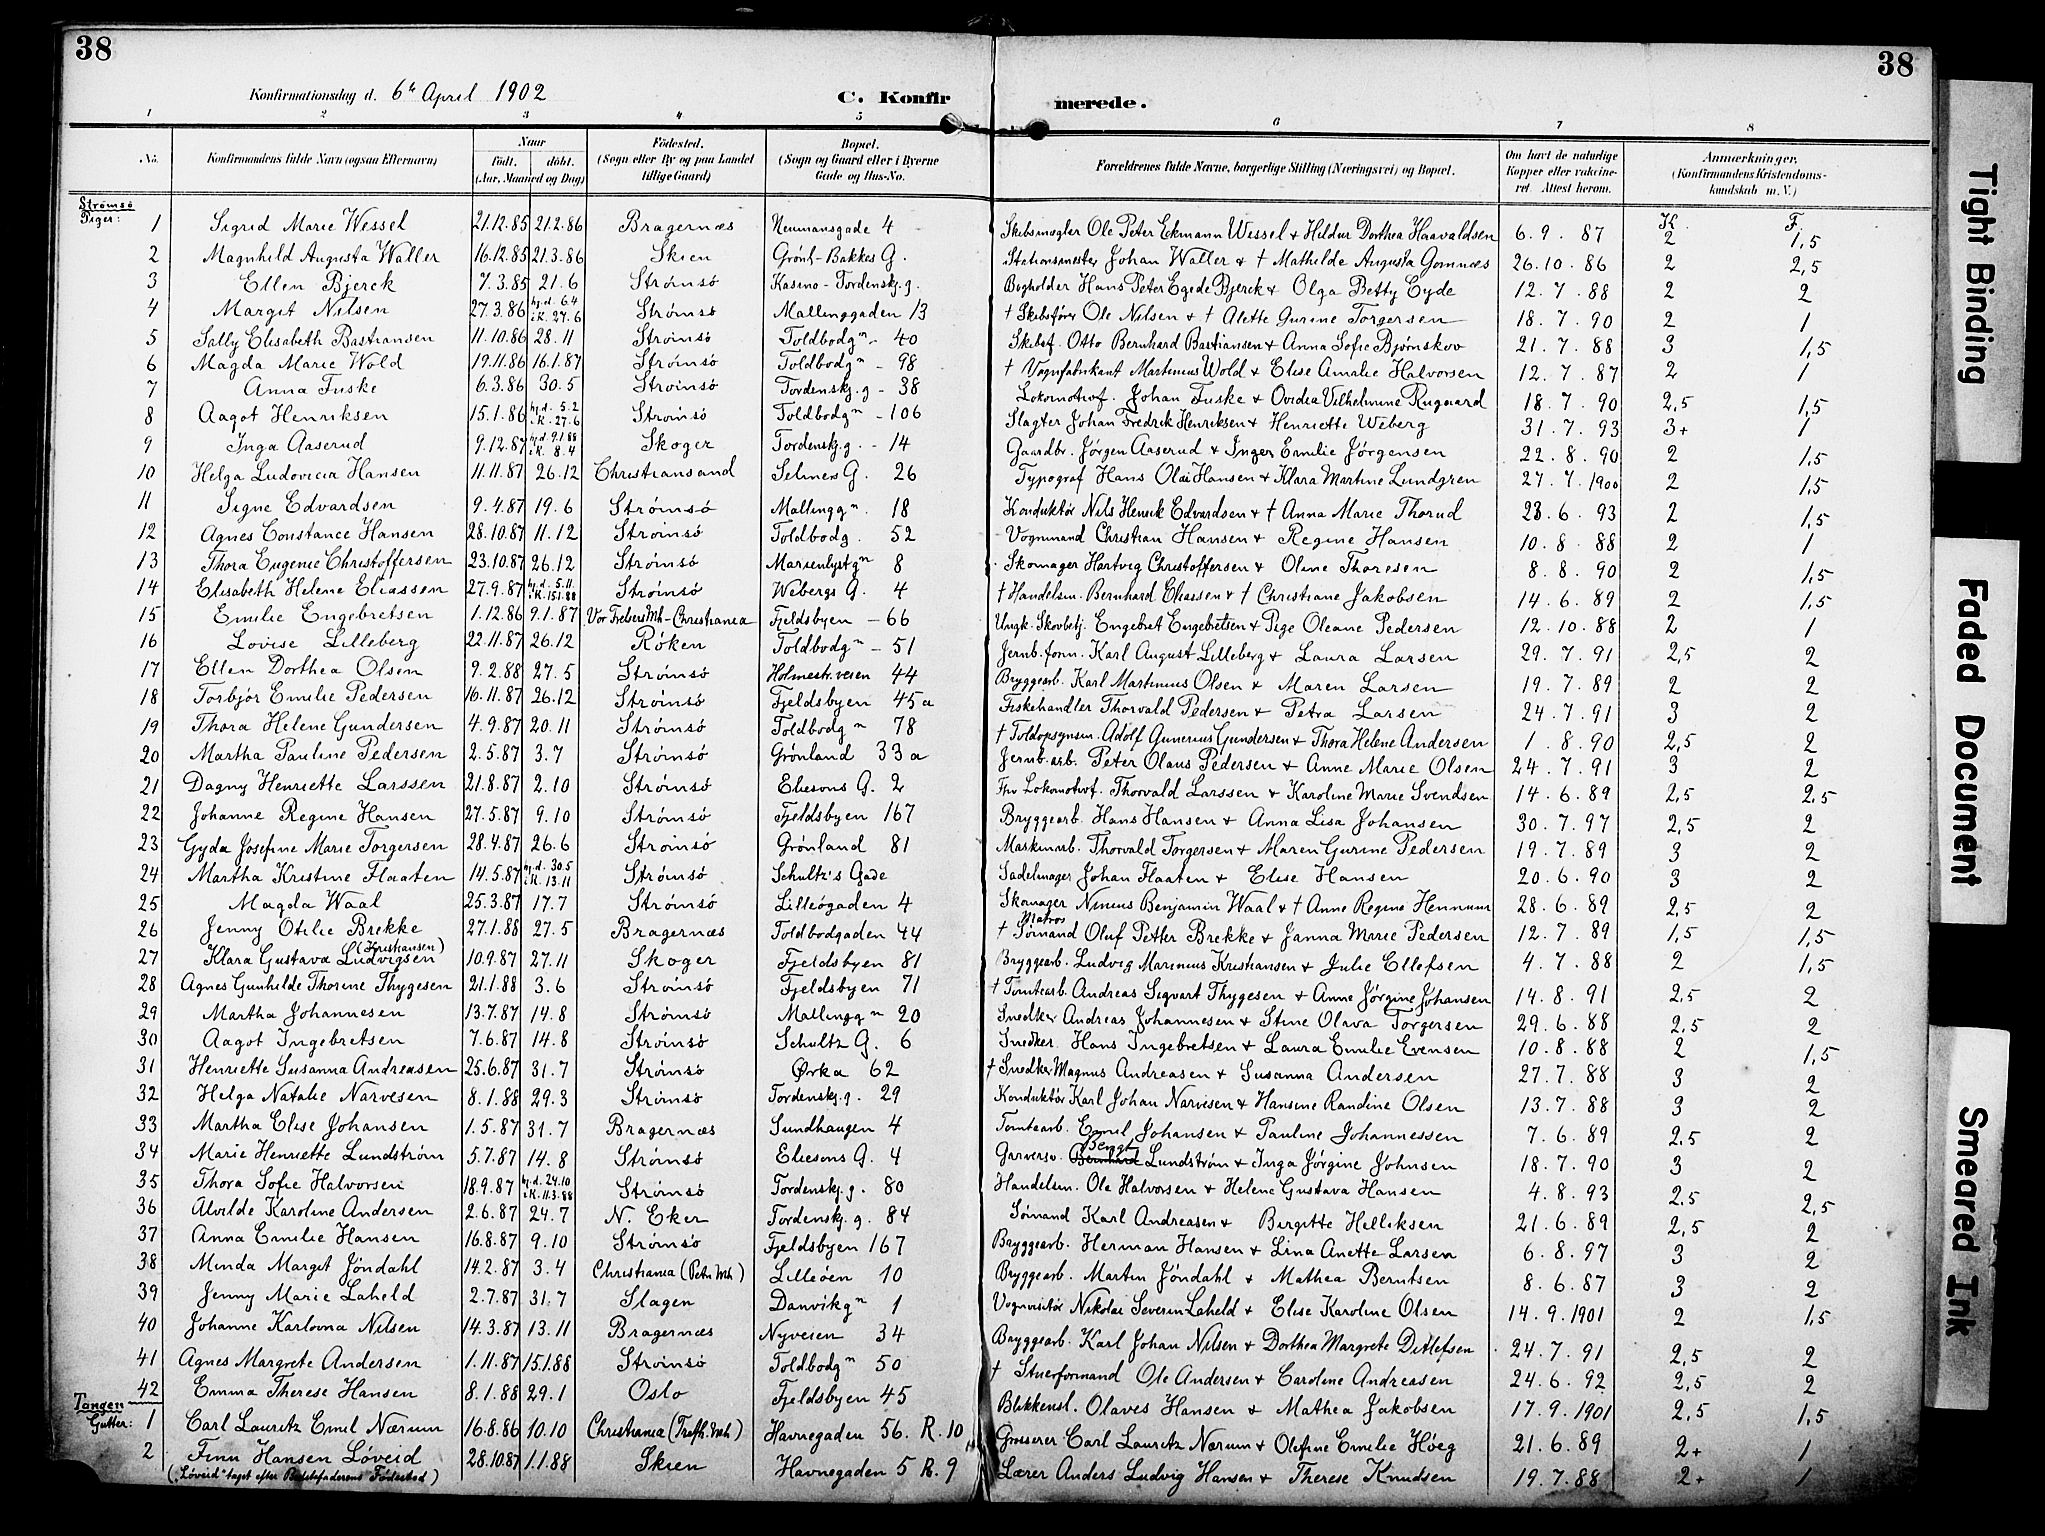 38
38
Konfirmationsdag d. 6te April 1902
C. Konfirmerede.
1 2 3 4 5 6 7 8
No. | Konfirmandens fulde Navn (ogsaa Efternavn) | Naar født. døbt. (Aar, Maaned og Dag) | Fødested. (Sogn eller By og paa Landet tillige Gaard) | Bopæl. (Sogn og Gaard eller i Byerne Gade og Hus-No. | Forældrenes fulde Navne, borgerlige Stilling (Næringsvei) og Bopæl. | Om havt de naturlige Kopper eller vaccineret. Attest herom. | Anmærkninger. (Konfirmandens Kristendomskundskab m. V.)
Strømsø
Piger: K. F.
1 Sigrid Marie Wessel 21.12.85 21.2.86 Bragernæs Neumansgade 4 Skibsmægler Ole Peter Eckmann Wessel + Hildur Dorthea Haavaldsen 6.9.87 2 1,5
2 Magnhild Augusta Waller 16.12.85 21.3.86 Skien Grønl-Bakkes G. Stationsmester Johan Waller + † Mathilde Augusta Gomnæs 26.10.86 2 2,5
3 Ellen Bjerck 7.3.85 21.6 Strømsö Kasino-Tordenskj.g. Bogholder Hans Peter Egede Bjerck + Olga Betty Eyde 12.7.88 2 2
4 Margit Nilsen 27.3.86 hj.d. 6.4 i K. 27.6 Strømsö Mallinggaden 13 † Skibsfører Ole Nilsen + † Alette Gurine Torgersen 18.7.90 2 1
5 Sally Elisabeth Bastiansen 11.10.86 28.11 Strømsö Toldbodgn - 40 Skibsf. Otto Bernhard Bastiansen + Anna Sofie Bjørnskov 21.7.88 3 1,5
6 Magda Marie Wold 19.11.86 16.1.87 Strømsö Toldbodgn - 98 † Vognfabrikant Martinius Wold + Elise Amalie Halvorsen 12.7.87 2 1
7 Anna Fuske 6.3.86 30.5 Strømsö Tordenskj.g - 38 Lokomotivf. Johan Fuske + Ovidia Vilhelmine Rugaard 18.7.90 2,5 1,5
8 Aagot Henriksen 15.1.86 hj.d. 5.2 i K. 27.6 Strømsö Toldbodgn - 106 Slagter Johan Fredrik Henriksen + Henriette Weberg 31.7.93 3+ 1
9 Inga Aaserud 9.12.87 hj.d. 9.1.88 i K. 8.4 Skoger Tordenskj.g. - 14 Gaardbr. Jörgen Aaserud + Inger Emilie Jörgensen 22.8.90 2 1,5
10 Helga Ludovicia Hansen 11.11.87 26.12 Christiansand Selmers G. 26 Typograf Hans Olai Hansen + Klara Martine Lundgren 27.7.1900 2 1,5
11 Signe Edvardsen 9.4.87 19.6 Strømsö Mallinggn. 18 Konduktör Nils Henrik Edvardsen + † Anna Marie Thorud 23.6.93 2 1,5
12 Agnes Constance Hansen 28.10.87 11.12 Strømsö Toldbodg. 52 Vognmand Christian Hansen + Regine Hansen 10.8.88 2 1
13 Thora Eugenie Christoffersen 23.10.87 26.12 Strømsö Marienlystgn 8 Skomager Hartvig Christoffersen + Oline Thoresen 8.8.90 2 1,5
14 Elisabeth Helene Eliassen 27.9.87 hj.d. 5.11 i K. 15.1.88 Strømsö Webergs G. 4 † Handelsm. Bernhard Eliassen + † Christiane Jakobsen 14.6.89 2 1,5
15 Emilie Engebretsen 1.12.86 9.1.87 Vor Frelsers Mh-Christiania Fjeldsbyen - 66 Ungk. Skovbetj. Engebret Engebretsen + Pige Oleane Pedersen 12.10.88 2 1
16 Lovise Lilleberg 22.11.87 26.12 Røken Toldbodgn - 51 Jernb.form. Karl August Lilleberg + Laura Larsen 29.7.91 2,5 2
17 Ellen Dorthea Olsen 9.2.88 27.5 Strømsö Holmestr.veien 44 Bryggearb. Karl Martinius Olsen + Maren Larsen 19.7.89 2 2
18 Torbjör Emilie Pedersen 16.11.87 26.12 Strømsö Fjeldsbyen 45a Fiskehandler Thorvald Pedersen + Petra Larsen 24.7.91 3 2
19 Thora Helene Gundersen 4.9.87 20.11 Strømsö Toldbodgn 78 † Toldopsynsm. Adolf Gunerius Gundersen + Thora Helene Andersen 1.8.90 2,5 2
20 Martha Pauline Pedersen 2.5.87 3.7 Strømsö Grønland 33a Jernb.arb. Peter Olaus Pedersen + Anne Marie Olsen 24.7.91 3 2
21 Dagny Henriette Larssen 21.8.87 2.10 Strømsö Eliesons G. 2 Fhv Lokomotivf. Thorvald Larssen + Karoline Marie Svendsen 14.6.89 2,5 2,5
22 Johanne Regine Hansen 27.5.87 9.10 Strømsö Fjeldsbyen 167 Bryggearb. Hans Hansen + Anna Lisa Johansen 30.7.97 2,5 2
23 Gyda Josefine Marie Torgersen 28.4.87 26.6 Strømsö Grønland 81 Maskinarb. Thorvald Torgersen + Maren Gurine Pedersen 19.7.89 3 2
24 Martha Kristine Flaaten 14.5.87 hj.d. 30.5 i K. 13.11 Strømsö Schultz's Gade Sadelmager Johan Flaaten + Elise Hansen 20.6.90 3 2
25 Magda Waal 25.3.87 17.7 Strømsö Lilleögaden 4 Skomager Ninius Benjamin Waal + † Anne Regine Hennum 28.6.89 2,5 2
26 Jenny Otilie Brekke 27.1.88 27.5 Bragernæs Toldbodgaden 44 † Sømand Matros Oluf Petter Brekke + Janna Marie Pedersen 12.7.89 1,5 1,5
27 Klara Gustava Ludvigsen (Kristiansen) 10.9.87 27.11 Skoger Fjeldsbyen 81 Bryggearb. Ludvig Marinius Kristiansen + Julie Ellefsen 4.7.88 2 1,5
28 Agnes Gunhilde Thorine Thygesen 21.1.88 3.6 Strømsö Fjeldsbyen 71 † Tomtearb. Andreas Sigvart Thygesen + Anne Jørgine Johansen 14.8.91 2,5 2
29 Martha Johannesen 13.7.87 14.8 Strømsö Mallinggn 20 Snedker Andreas Johannesen + Stine Olava Torgersen 29.6.88 2,5 2
30 Aagot Ingebretsen 7.6.87 14.8 Strømsö Schultz G. 6 Snedker. Hans Ingebretsen + Laura Emilie Evensen 10.8.88 2 1,5
31 Henriette Susanna Andreasen 25.6.87 31.7 Strømsö Ørka 62 † Snedker Magnus Andreasen + Susanna Andersen 27.7.88 3 2
32 Helga Natalie Narvesen 8.1.88 29.3 Strømsö Tordenskj.g. 29 Konduktör Karl Johan Narvesen + Hansine Randine Olsen 13.7.88 3 2
33 Martha Elise Johansen 1.5.87 31.7 Bragernæs Sundhaugen 4 Tomtearb. Emil Johansen + Pauline Johannessen 7.6.89 2,5 2
34 Marie Henriette Lundström 5.7.87 14.8 Strømsö Eliesons G. 4 Garversv. Bernhard Bengt Lundström + Inga Jörgine Johnsen 18.7.90 3 2
35 Thora Sofie Halvorsen 18.9.87 hj.d. 24.10 i K. 11.3.88 Strømsö Tordenskj.g. 80 Handelsm. Ole Halvorsen + Helene Gustava Hansen 4.8.93 2,5 2,5
36 Alvilde Karoline Andersen 2.6.87 24.7 N. Eker Tordenskj.g. 84 Sømand Karl Andreasen + Birgitte Helliksen 21.6.89 2,5 2
37 Anna Emilie Hansen 16.8.87 9.10 Strømsö Fjeldsbyen 167 Bryggearb. Herman Hansen + Lina Anette Larsen 6.8.97 3 2
38 Minda Margit Jöndahl 14.2.87 3.4 Christiania (Petri Mh) Lilleöen 10 Bryggearb. Martin Jöndahl + Mathea Berntsen 8.6.87 3 2
39 Jenny Marie Laheld 2.7.87 31.7 Slagen Danvikgn 1 Vognvisitör Nikolai Severin Laheld + Elise Karoline Olsen 14.9.1901 2 1,5
40 Johanne Karlovna Nilsen 14.3.87 13.11 Bragernæs Nyveien 34 Bryggearb. Karl Johan Nilsen + Dorthea Margrete Ditlefsen 24.7.91 2,5 2
41 Agnes Margrete Andersen 1.11.87 15.1.88 Strømsö Toldbodgn 50 † Stuerformand Ole Andersen + Caroline Andreasen 24.6.92 2,5 2
42 Emma Therese Hansen 8.1.88 29.1 Oslo Fjeldsbyen 45 Blikkensl. Olaves Hansen + Mathea Jakobsen 17.9.1901 2,5 1,5
Tangen
Gutter: 1 Carl Lauritz Emil Nærum 16.8.86 10.10 Christiania (Trefh. Mh) Havnegaden 56. R. 10 Grosserer Carl Lauritz Nærum + Olefine Emilie Höeg 21.6.89 2+ 1
2 Finn Hansen Løveid 28.10.87 1.1.88 Skien Havnegaden 5 R. 9 Lærer Anders Ludvig Hansen + Therese Knudsen 19.7.88 2+ 1
("Løveid" taget efter Bedstefaderens Fødested)
Tight Binding
Faded Document
Smeared Ink